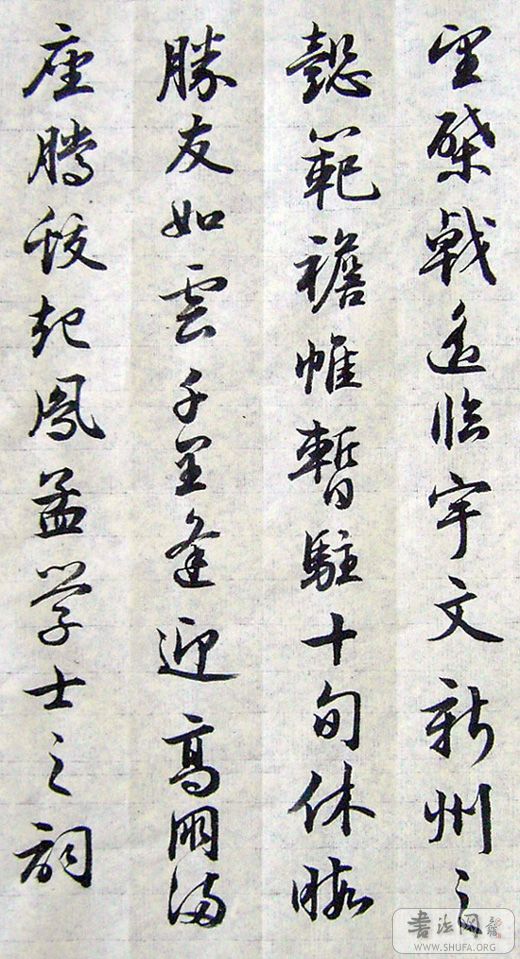 望棨戟遥临宇文新州之
懿範襜帷暫駐十旬休暇
勝友如雲千里逢迎高朋满
座腾蛟起鳳孟学士之詞
書法网
WWW.SHUFA.ORG